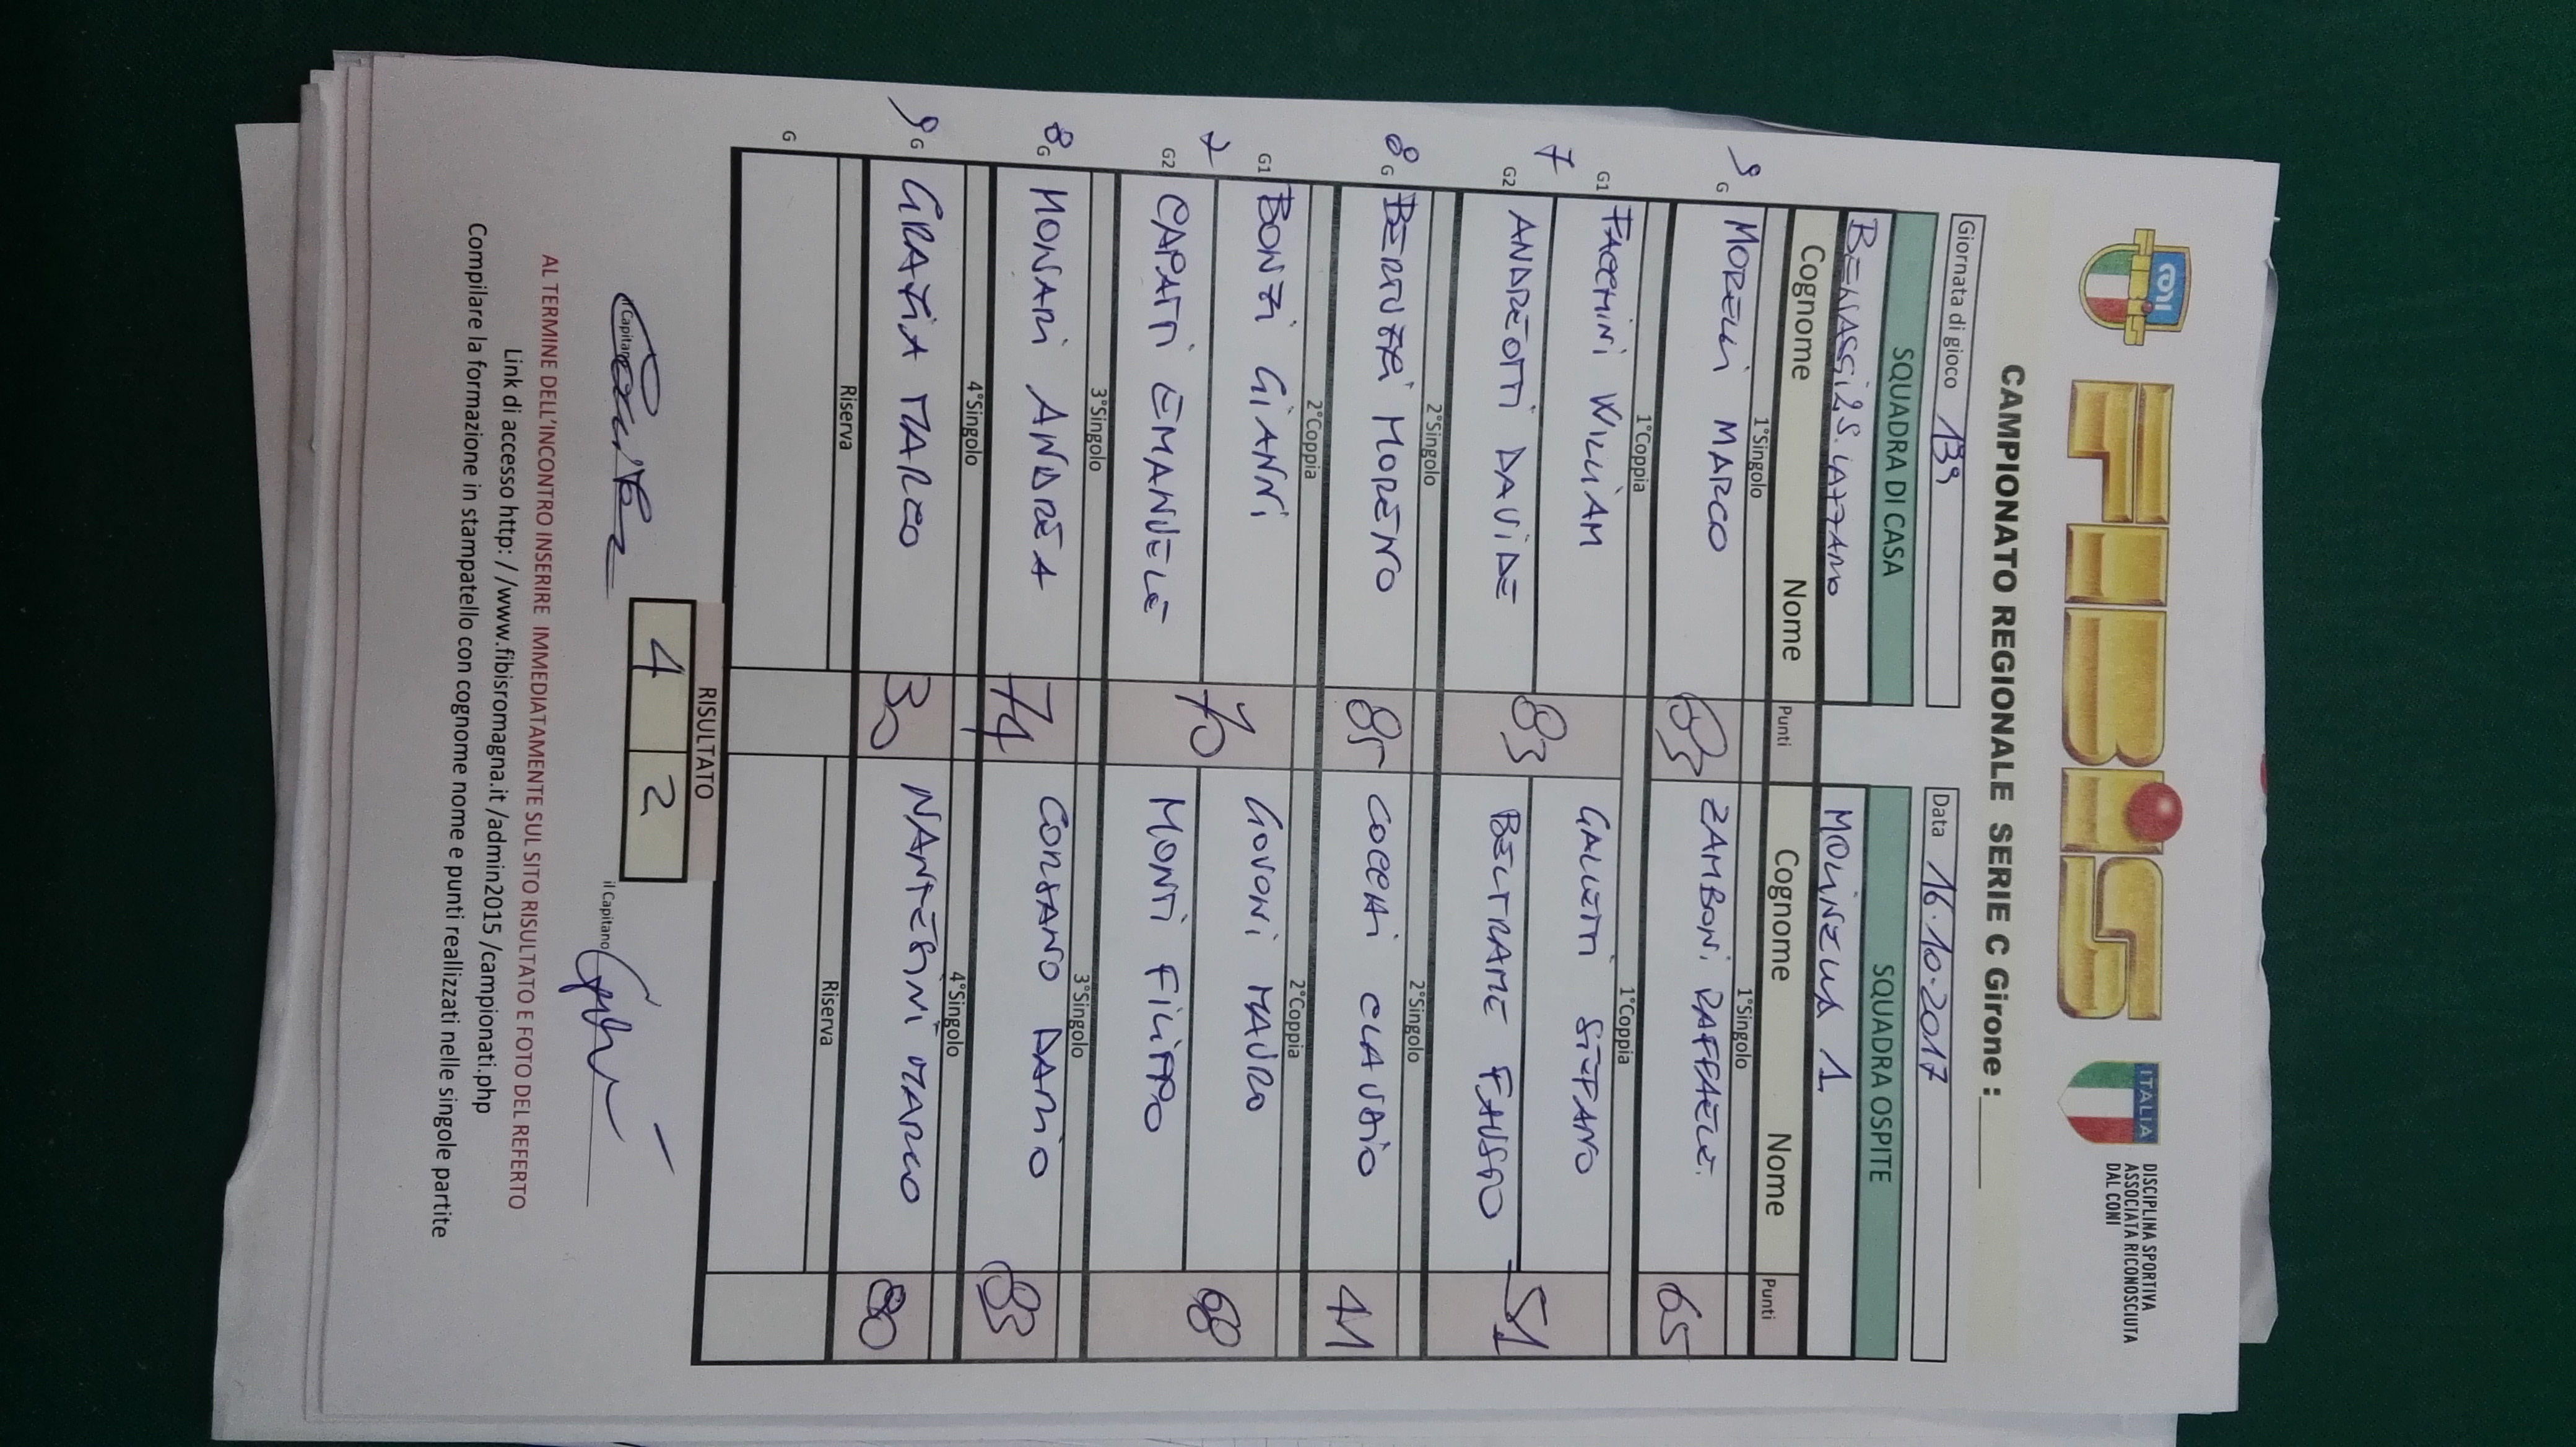 CONI
FIBiS
FIBiS
ITALIA
DISCIPLINA SPORTIVA
ASSOCIATA RICONOSCIUTA
DAL CONI
CAMPIONATO REGIONALE SERIE C Girone :
Giornata di gioco
Data 16.10.2017
SQUADRA DI CASA SQUADRA OSPITE
MOLINELLA 1
Cognome Nome Punti Cognome Nome Punti
1°Singolo 1°Singolo
9 G MORELLI MARCO 83 ZAMBONI RAFFAELE 65
1°Coppia 1°Coppia
G1 FACCHINI WILLIAM GALLETTI STEFANO
7 83 51
G2 ANDREOTTI DAVIDE BELTRAME FAUSTO
2°Singolo 2°Singolo
8 G BERTUZZI MORENO 85 COCCHI CLAUDIO 41
2°Coppia 2°Coppia
G1 BONZI GIANNI GOVONI MAURO
7 70 68
G2 CAPATTI EMANUELE MONTI FILIPPO
3°Singolo 3°Singolo
8 G MONARI ANDREA 74 CORSANO DARIO 83
4°Singolo 4°Singolo
9 G GRAZIA MARCO 30 MARCO 80
Riserva Riserva
G
RISULTATO
4 2
il Capitano il Capitano
AL TERMINE DELL'INCONTRO INSERIRE IMMEDIATAMENTE SUL SITO RISULTATO E FOTO DEL REFERTO
Link di accesso http: / /www.fibisromagna.it /admin2015 /campionati.php
Compilare la formazione in stampatello con cognome nome e punti reallizzati nelle singole partite